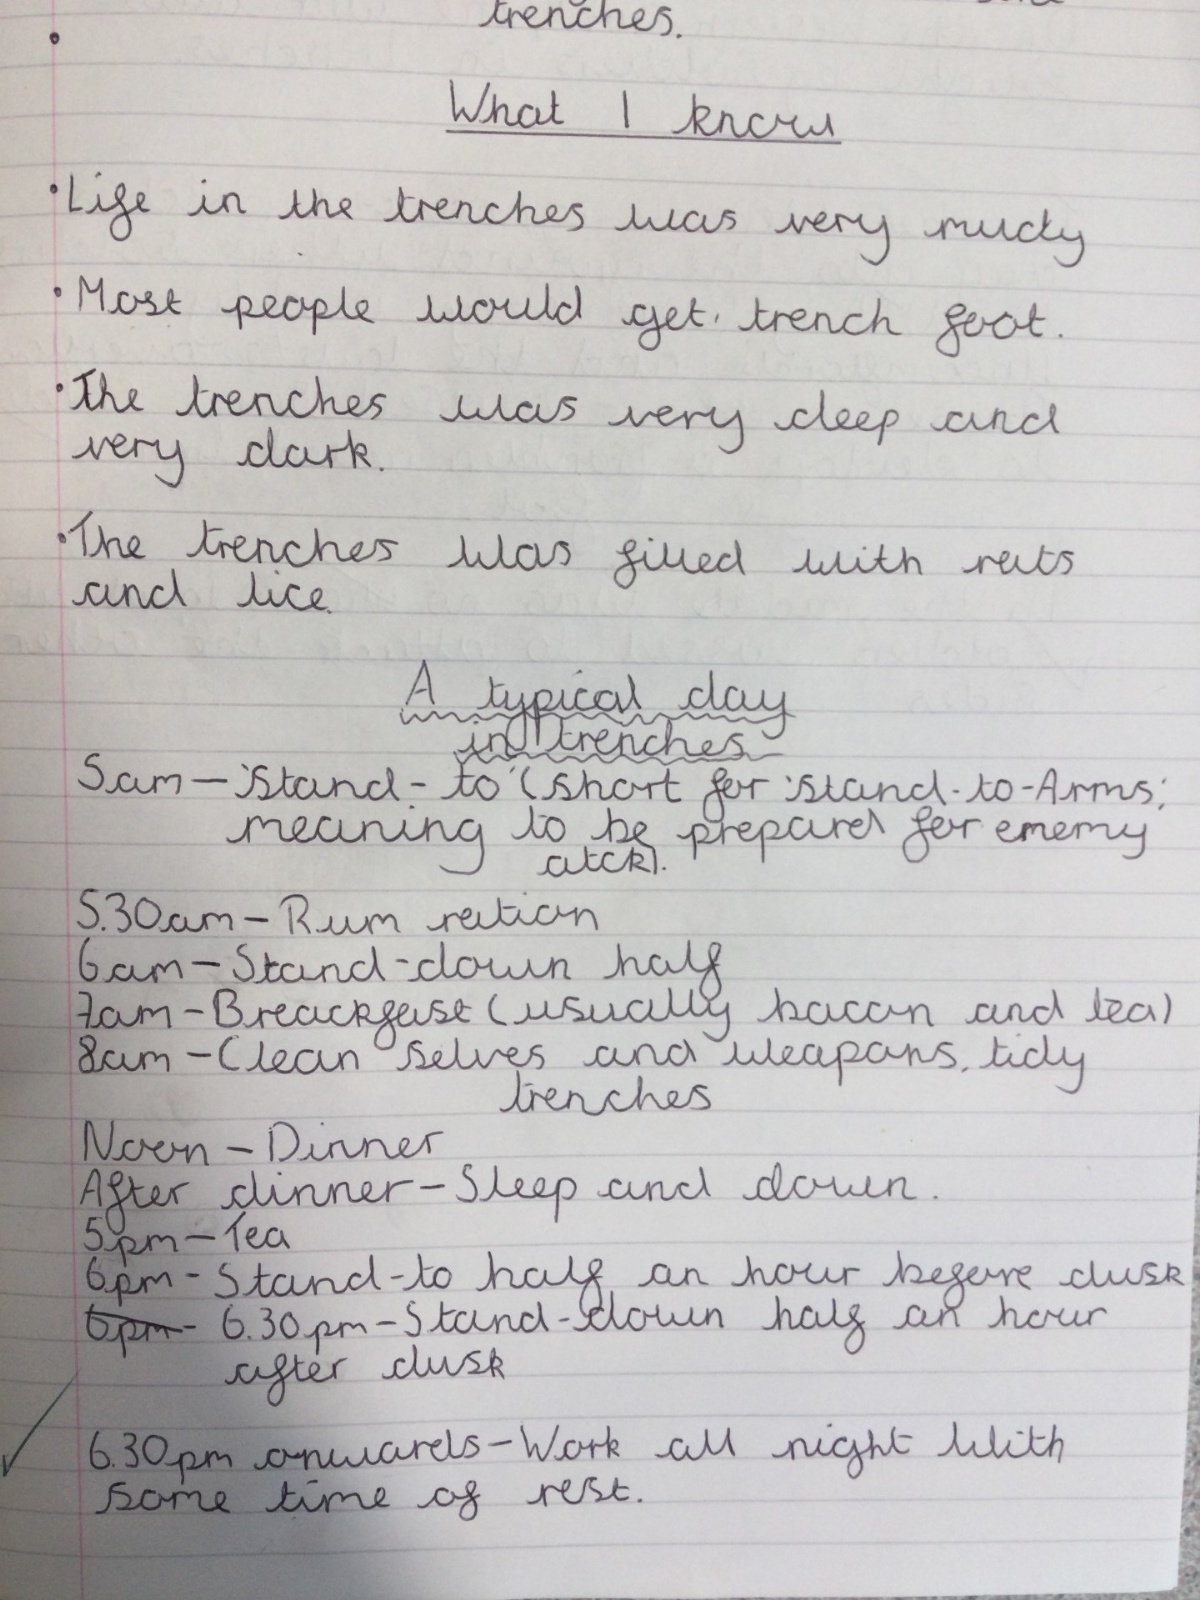 trenches.
What I know
• Life in the trenches was very mudy
• Most people would get trench foot.
• The trenches was very deep and
very dark.
• The trenches was filled with rats
and lice.
A typical day
in trenches
5am – 'Stand-to' (short for 'Stand-to-Arms,'
meaning to be prepared for enemy
atck).
5.30am – Rum ration
6am – Stand-down half
7am – Breackfast (usually bacon and tea)
8am – Clean selves and weapons, tidy
trenches
Noon – Dinner
After dinner – Sleep and down.
5pm – Tea
6pm - Stand-to half an hour before dusk
6pm - 6.30pm – Stand-down half an hour
after dusk
6.30pm onwards – Work all night With
some time of rest.